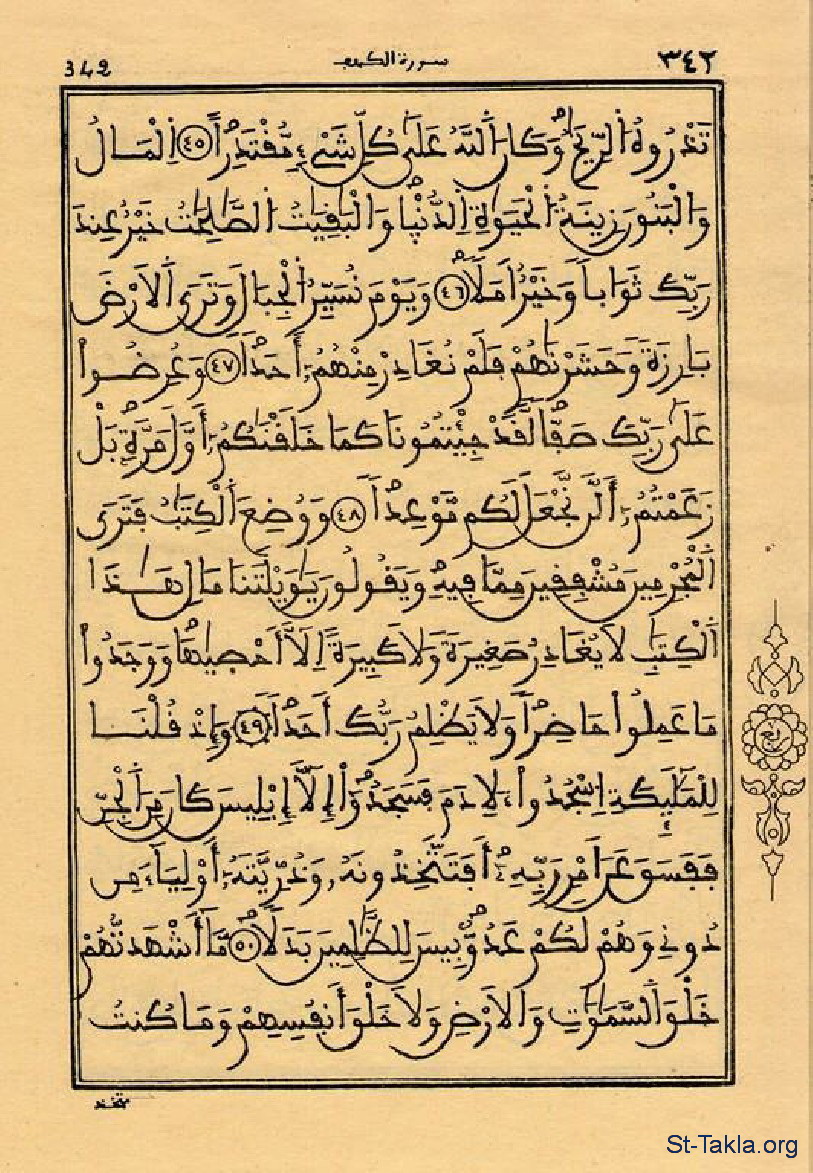 ٣٤٢ سورة الكهف 342
تَذْرُوهُ الرِّيَٰحُ وَكَانَ اللَّهُ عَلَىٰ كُلِّ شَيْءٍ مُّقْتَدِراً ٤٥ اِلْمَالُ
وَالْبَنُونَ زِينَةُ الْحَيَوٰةِ اِلدُّنْيَا وَالْبَٰقِيَٰتُ الصَّٰلِحَٰتُ خَيْرٌ عِندَ
رَبِّكَ ثَوَاباً وَخَيْرٌ اَمَلاً ٤٦ وَيَوْمَ نُسَيِّرُ الْجِبَالَ وَتَرَى الَارْضَ
بَارِزَةً وَحَشَرْنَٰهُمْ فَلَمْ نُغَادِرْ مِنْهُمُۥٓ أَحَداً ٤٧ وَعُرِضُواْ
عَلَىٰ رَبِّكَ صَفّاً لَّقَدْ جِئْتُمُونَا كَمَا خَلَقْنَٰكُمُۥٓ أَوَّلَ مَرَّةٍ بَلْ
زَعَمْتُمُۥٓ أَلَّن نَّجْعَلَ لَكُم مَّوْعِداً ٤٨ وَوُضِعَ الْكِتَٰبُ فَتَرَى
الْمُجْرِمِينَ مُشْفِقِينَ مِمَّا فِيهِ وَيَقُولُونَ يَٰوَيْلَتَنَا مَالِ هَٰذَا
الْكِتَٰبِ لَا يُغَادِرُ صَغِيرَةً وَلَا كَبِيرَةً اِلَّآ أَحْصَيٰهَا وَوَجَدُواْ
مَا عَمِلُواْ حَاضِراً وَلَا يَظْلِمُ رَبُّكَ أَحَداً ٤٩ وَإِذْ قُلْنَا
لِلْمَلَٰٓئِكَةِ اِسْجُدُواْ ءَلِادَمَ فَسَجَدُوٓاْ إِلَّآ إِبْلِيسَ كَانَ مِنَ الْجِنِّ
فَفَسَقَ عَنَ اَمْرِ رَبِّهِۦٓ أَفَتَتَّخِذُونَهُۥ وَذُرِّيَّتَهُۥٓ أَوْلِيَآءَ مِن
دُونِي وَهُمْ لَكُمْ عَدُوٌّ بِيسَ لِلظَّٰلِمِينَ بَدَلاً ٥٠ مَّآ أَشْهَدتُّهُمْ
خَلْقَ السَّمَٰوَٰتِ وَالَارْضِ وَلَا خَلْقَ أَنفُسِهِمْ وَمَا كُنتُ
متخذ
St-Takla.org